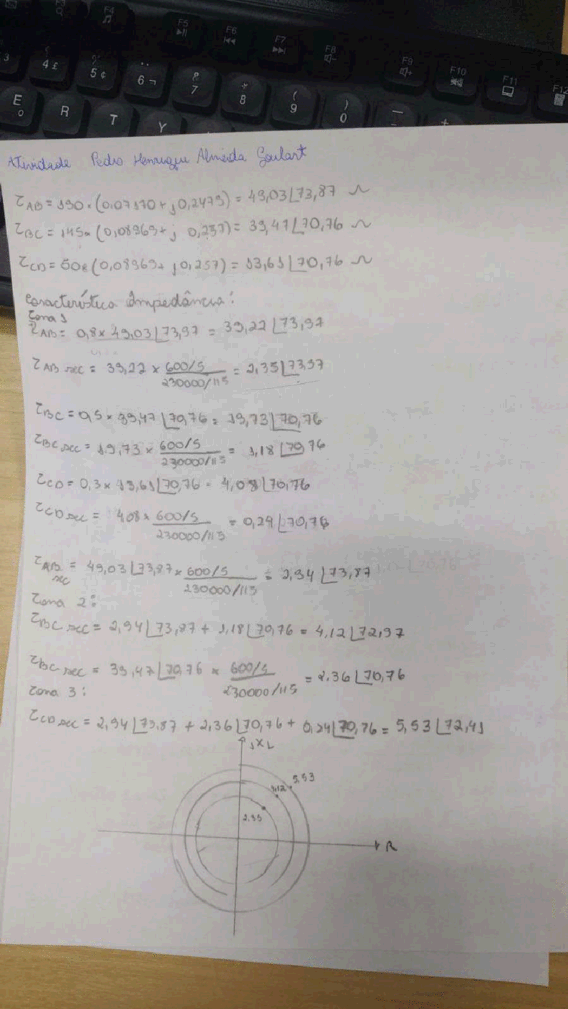 F5
F6
F7
F8
F9
F10
F11
F12
4 £
5 ¢
6 ¬
7
8
(
9
)
0
E
R
T
Y
Atividade Pedro Henrique Almeida Goulart
Z AB = 190 . (0,07170 + j 0,2479) = 49,03 ∠73,87 Ω
Z BC = 145 . (0,08969 + j 0,257) = 39,47 ∠70,76 Ω
Z CD = 50 . (0,08969 + j 0,257) = 13,61 ∠70,76 Ω
Característica Impedância:
Zona 1
Z AB = 0,8 x 49,03 ∠73,97 = 39,22 ∠73,97
Z AB sec = 39,22 x 600/5 / 230000/115 = 2,35 ∠73,97
Z BC = 0,5 x 39,47 ∠70,76 = 19,73 ∠70,76
Z BC sec = 19,73 x 600/5 / 230000/115 = 1,18 ∠70,76
Z CD = 0,3 x 13,61 ∠70,76 = 4,08 ∠70,76
Z CD sec = 4,08 x 600/5 / 230000/115 = 0,24 ∠70,76
Z AB sec = 49,03 ∠73,87 x 600/5 / 230000/115 = 2,94 ∠73,87
Zona 2:
Z BC sec = 2,94 ∠73,87 + 1,18 ∠70,76 = 4,12 ∠72,97
Z BC sec = 39,47 ∠70,76 x 600/5 / 230000/115 = 2,36 ∠70,76
Zona 3:
Z CD sec = 2,94 ∠73,87 + 2,36 ∠70,76 + 0,24 ∠70,76 = 5,53 ∠72,41
jXL
5,53
4,12
2,35
R